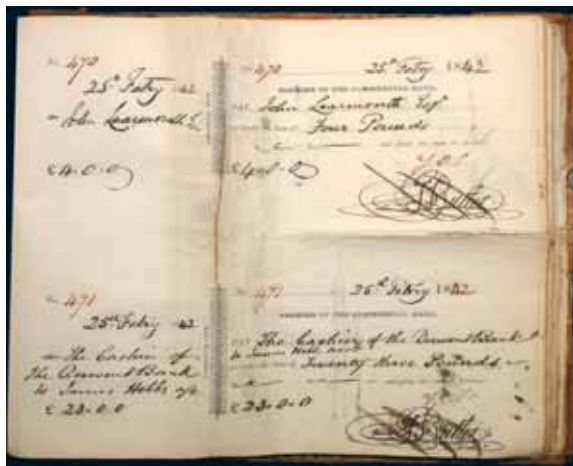 No. 470
25th Febry 1842
John Learmonth Esq
£4.0.0
No. 470 25th Febry 1842
CASHIER OF THE COMMERCIAL BANK,
PAY John Learmonth Esqr
Four Pounds
£4.0.0
No. 471
25th Febry 1842
The Cashier of
the Derwent Bank
to James Hobbs a/c
£23.0.0
No. 471 25th Febry 1842
CASHIER OF THE COMMERCIAL BANK,
PAY The Cashier of the Derwent Bank
to James Hobbs acct
Twenty three Pounds
£23.0.0